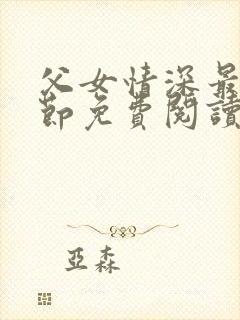 父女情深最
節免費閱讀
亞森